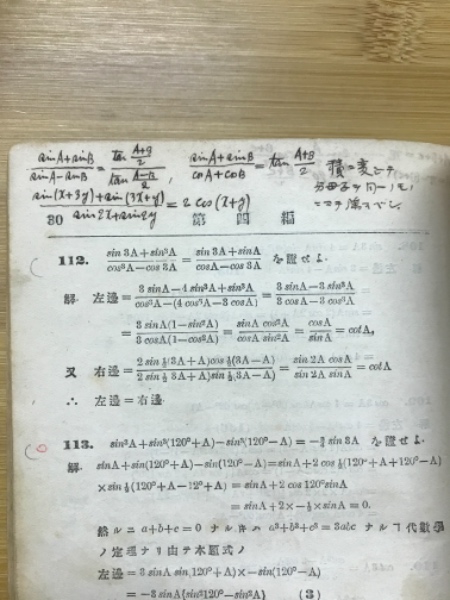 sinA+sinB/sinA−sinB = tan A+B/2 / tan A−B/2 , sinA+sinB/cosA+cosB = tan A+B/2 積ニ変ジテ
sin(x+3y)+sin(3x+y)/sin2x+sin2y = 2cos(x+y)
30 第四編
112. sin 3A+sin³A/cos³A−cos 3A = sin 3A+sinA/cosA−cos 3A ヲ證セよ.
解. 左邊= 3 sinA−4 sin³A+sin³A/cos³A−(4 cos³A−3 cosA) = 3 sinA−3 sin³A/3 cosA−3 cos³A
= 3 sinA(1−sin²A)/3 cosA(1−cos²A) = sinA cos²A/cosA sin²A = cosA/sinA = cotA,
又 右邊= 2 sin ½(3A+A)cos ½(3A−A)/2 sin ½(3A+A)sin ½(3A−A) = sin 2A cosA/sin 2A sinA = cotA
∴ 左邊=右邊.
113. sin³A+sin³(120°+A)−sin³(120°−A)=−¾ sin 3A ヲ證セよ.
解. sinA+sin(120°+A)−sin(120°−A)=sinA+2 cos ½(120°+A+120°−A)
×sin ½(120°+A−12°+A) = sinA+2 cos 120°sinA
= sinA+2×−½×sinA = 0.
然ルニ a+b+c=0 ナル時ハ a³+b³+c³=3abc ナルヿ代數學
ノ定理ナリ由テ本題式ノ
左邊=3 sinA sin(120°+A)×−sin(120°−A)
=−3 sinA{sin²120°−sin²A} (3)